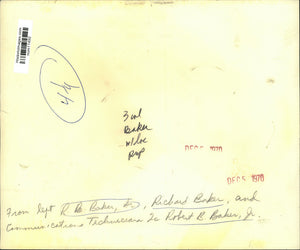 3 col
Baker
w/loc
pup
DEC 5 1970
DEC 5 1970
From left R. B. Baker, Sr., Richard Baker, and
Communications Technician 2c Robert B. Baker, Jr.